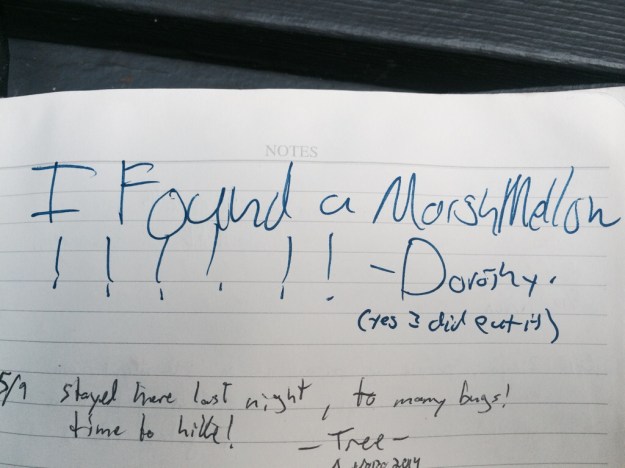 NOTES
I Found a Marshmellow
! ! ! ! ! ! - Dorothy.
(yes I did eat it)
5/9 stayed here last night, to many bugs!
time to hike!
-Tree-
2014